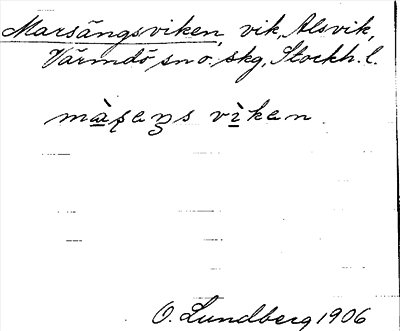 Marsängsviken, vik, Alsvik,
Värmdö sn o. skg, Stockh. l.
màṣaŋs vìkan
O. Lundberg 1906